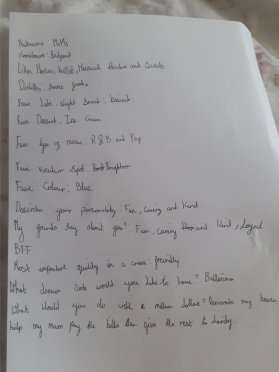 Nickname MiMi
Hometown: Bedford
Likes: Movies, ballet, Musical theatre and Sweets
Dislikes: Some foods
Fave Late Night Snack: biscuit
Fave Dessert: Ice Cream
Fave type of music: R&B and Pop
Fave vacation Spot: Brighton
Fave Colour: Blue
Describe your personality: Fun, Caring and Kind
My friends say about you: Fun, Caring and Kind, loyal
BFF
Most important quality in a crush: friendly
What dream Job would you like to have? Ballerina
What Would you do with a million dollars? Renovate my house
help my mum Pay the bills then give the rest to charity.